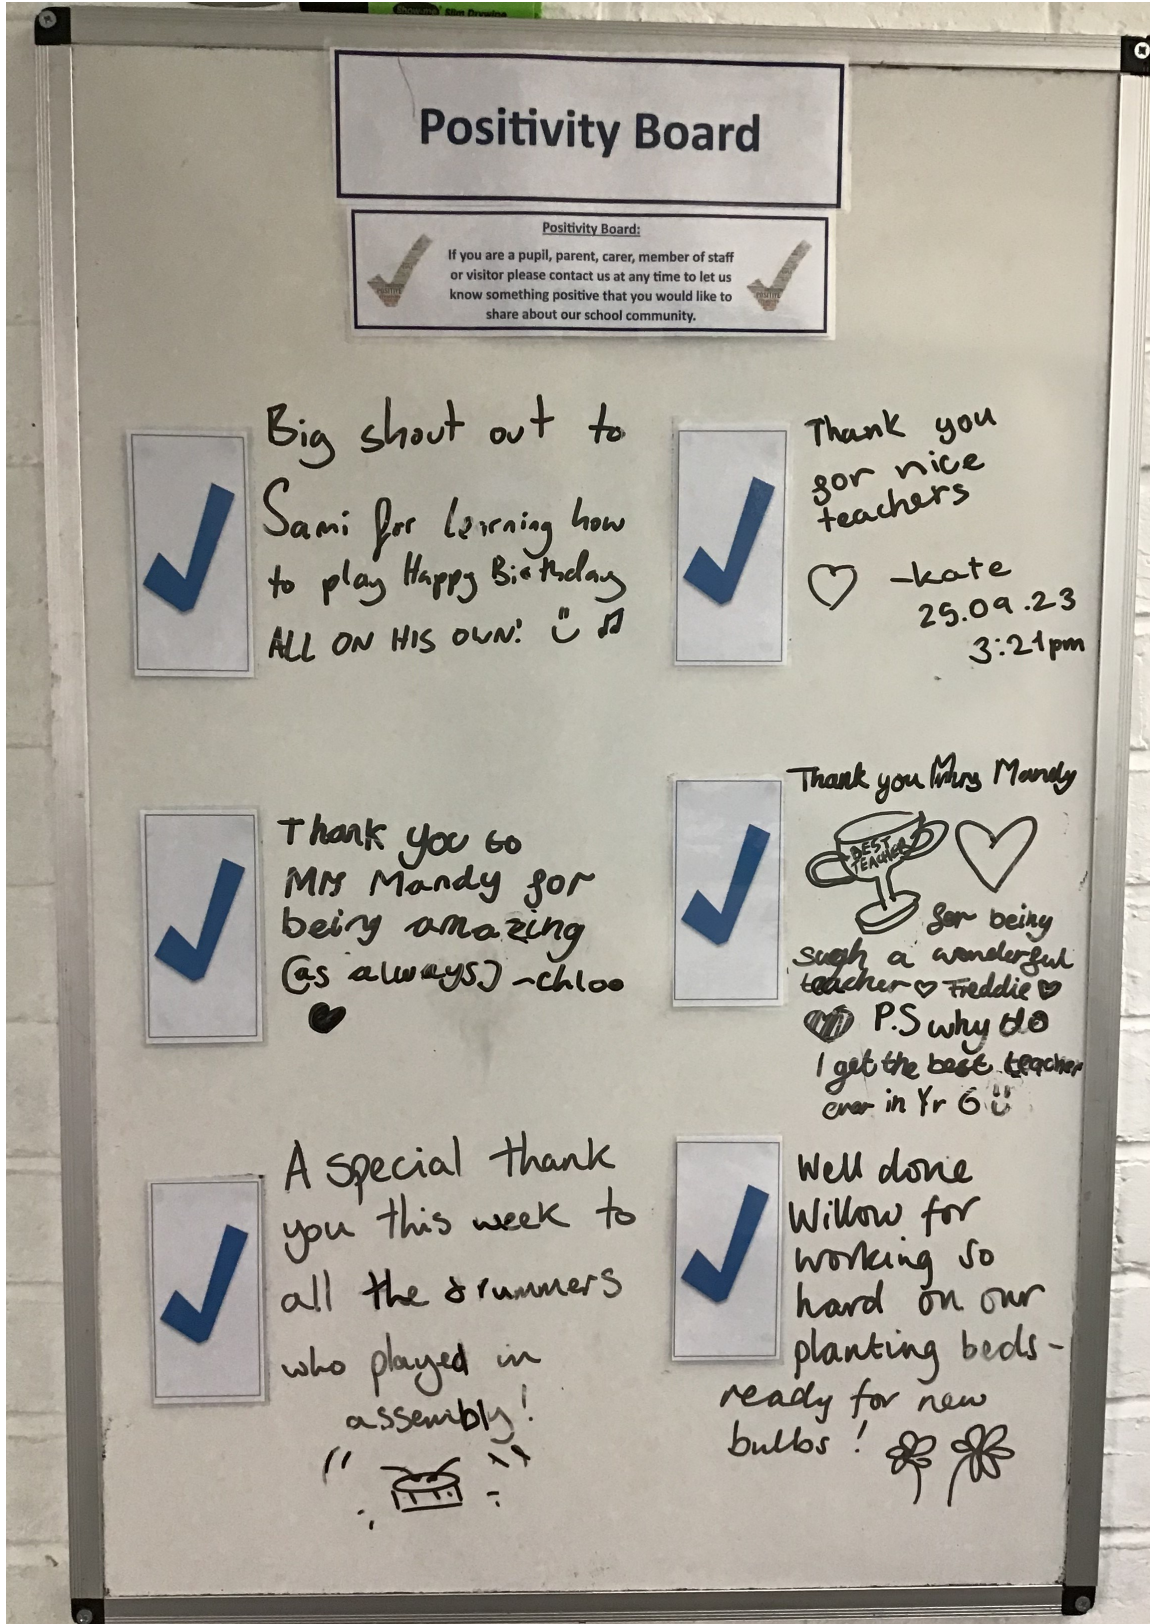 Show-me Slim Drywipe
Positivity Board
Positivity Board:
If you are a pupil, parent, carer, member of staff
or visitor please contact us at any time to let us
know something positive that you would like to
share about our school community.
Big shout out to
Sami for learning how
to play Happy Birthday
ALL ON HIS OWN!
Thank you
for nice
teachers
-kate
25.09.23
3:21pm
Thank you to
Mrs Mandy for
being amazing
(as always) ~Chloe
Thank you Mrs Mandy
BEST
TEACHER
for being
such a wonderful
teacher ♡ Freddie ♡
P.S why do
I get the best teacher
ever in Yr 6
A special thank
you this week to
all the drummers
who played in
assembly!
Well done
Willow for
working so
hard on our
planting beds-
ready for new
bulbs!